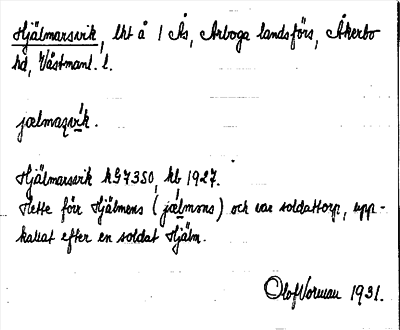 Hjälmarsvik, lht å 1 Ås, Arboga landsförs, Åkerbo
hd, Västmanl. l.
jælmaʂvik.
Hjälmarsvik kG7350, kb 1927.
Hette förr Hjälmens (jælmɘns) och var soldattorp, upp-
kallat efter en soldat Hjälm.
Olof Norman 1931.